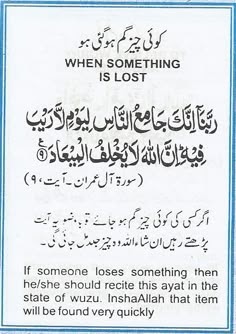 کوئی چیز گم ہو گئی ہو
WHEN SOMETHING
IS LOST
رَبَّنَآ اِنَّكَ جَامِعُ النَّاسِ لِيَوْمٍ لَّا رَيْبَ
فِيْهِ ؕ اِنَّ اللّٰهَ لَا يُخْلِفُ الْمِيْعَادَ ۹
(سورۃ آل عمران ۔ آیت ، ۹)
اگر کسی کی کوئی چیز گم ہو جائے تو باوضو یہ آیت
پڑھتے رہیں ان شاء اللہ وہ چیز جلد مل جائی گی ۔
If someone loses something then
he/she should recite this ayat in the
state of wuzu. InshaAllah that item
will be found very quickly